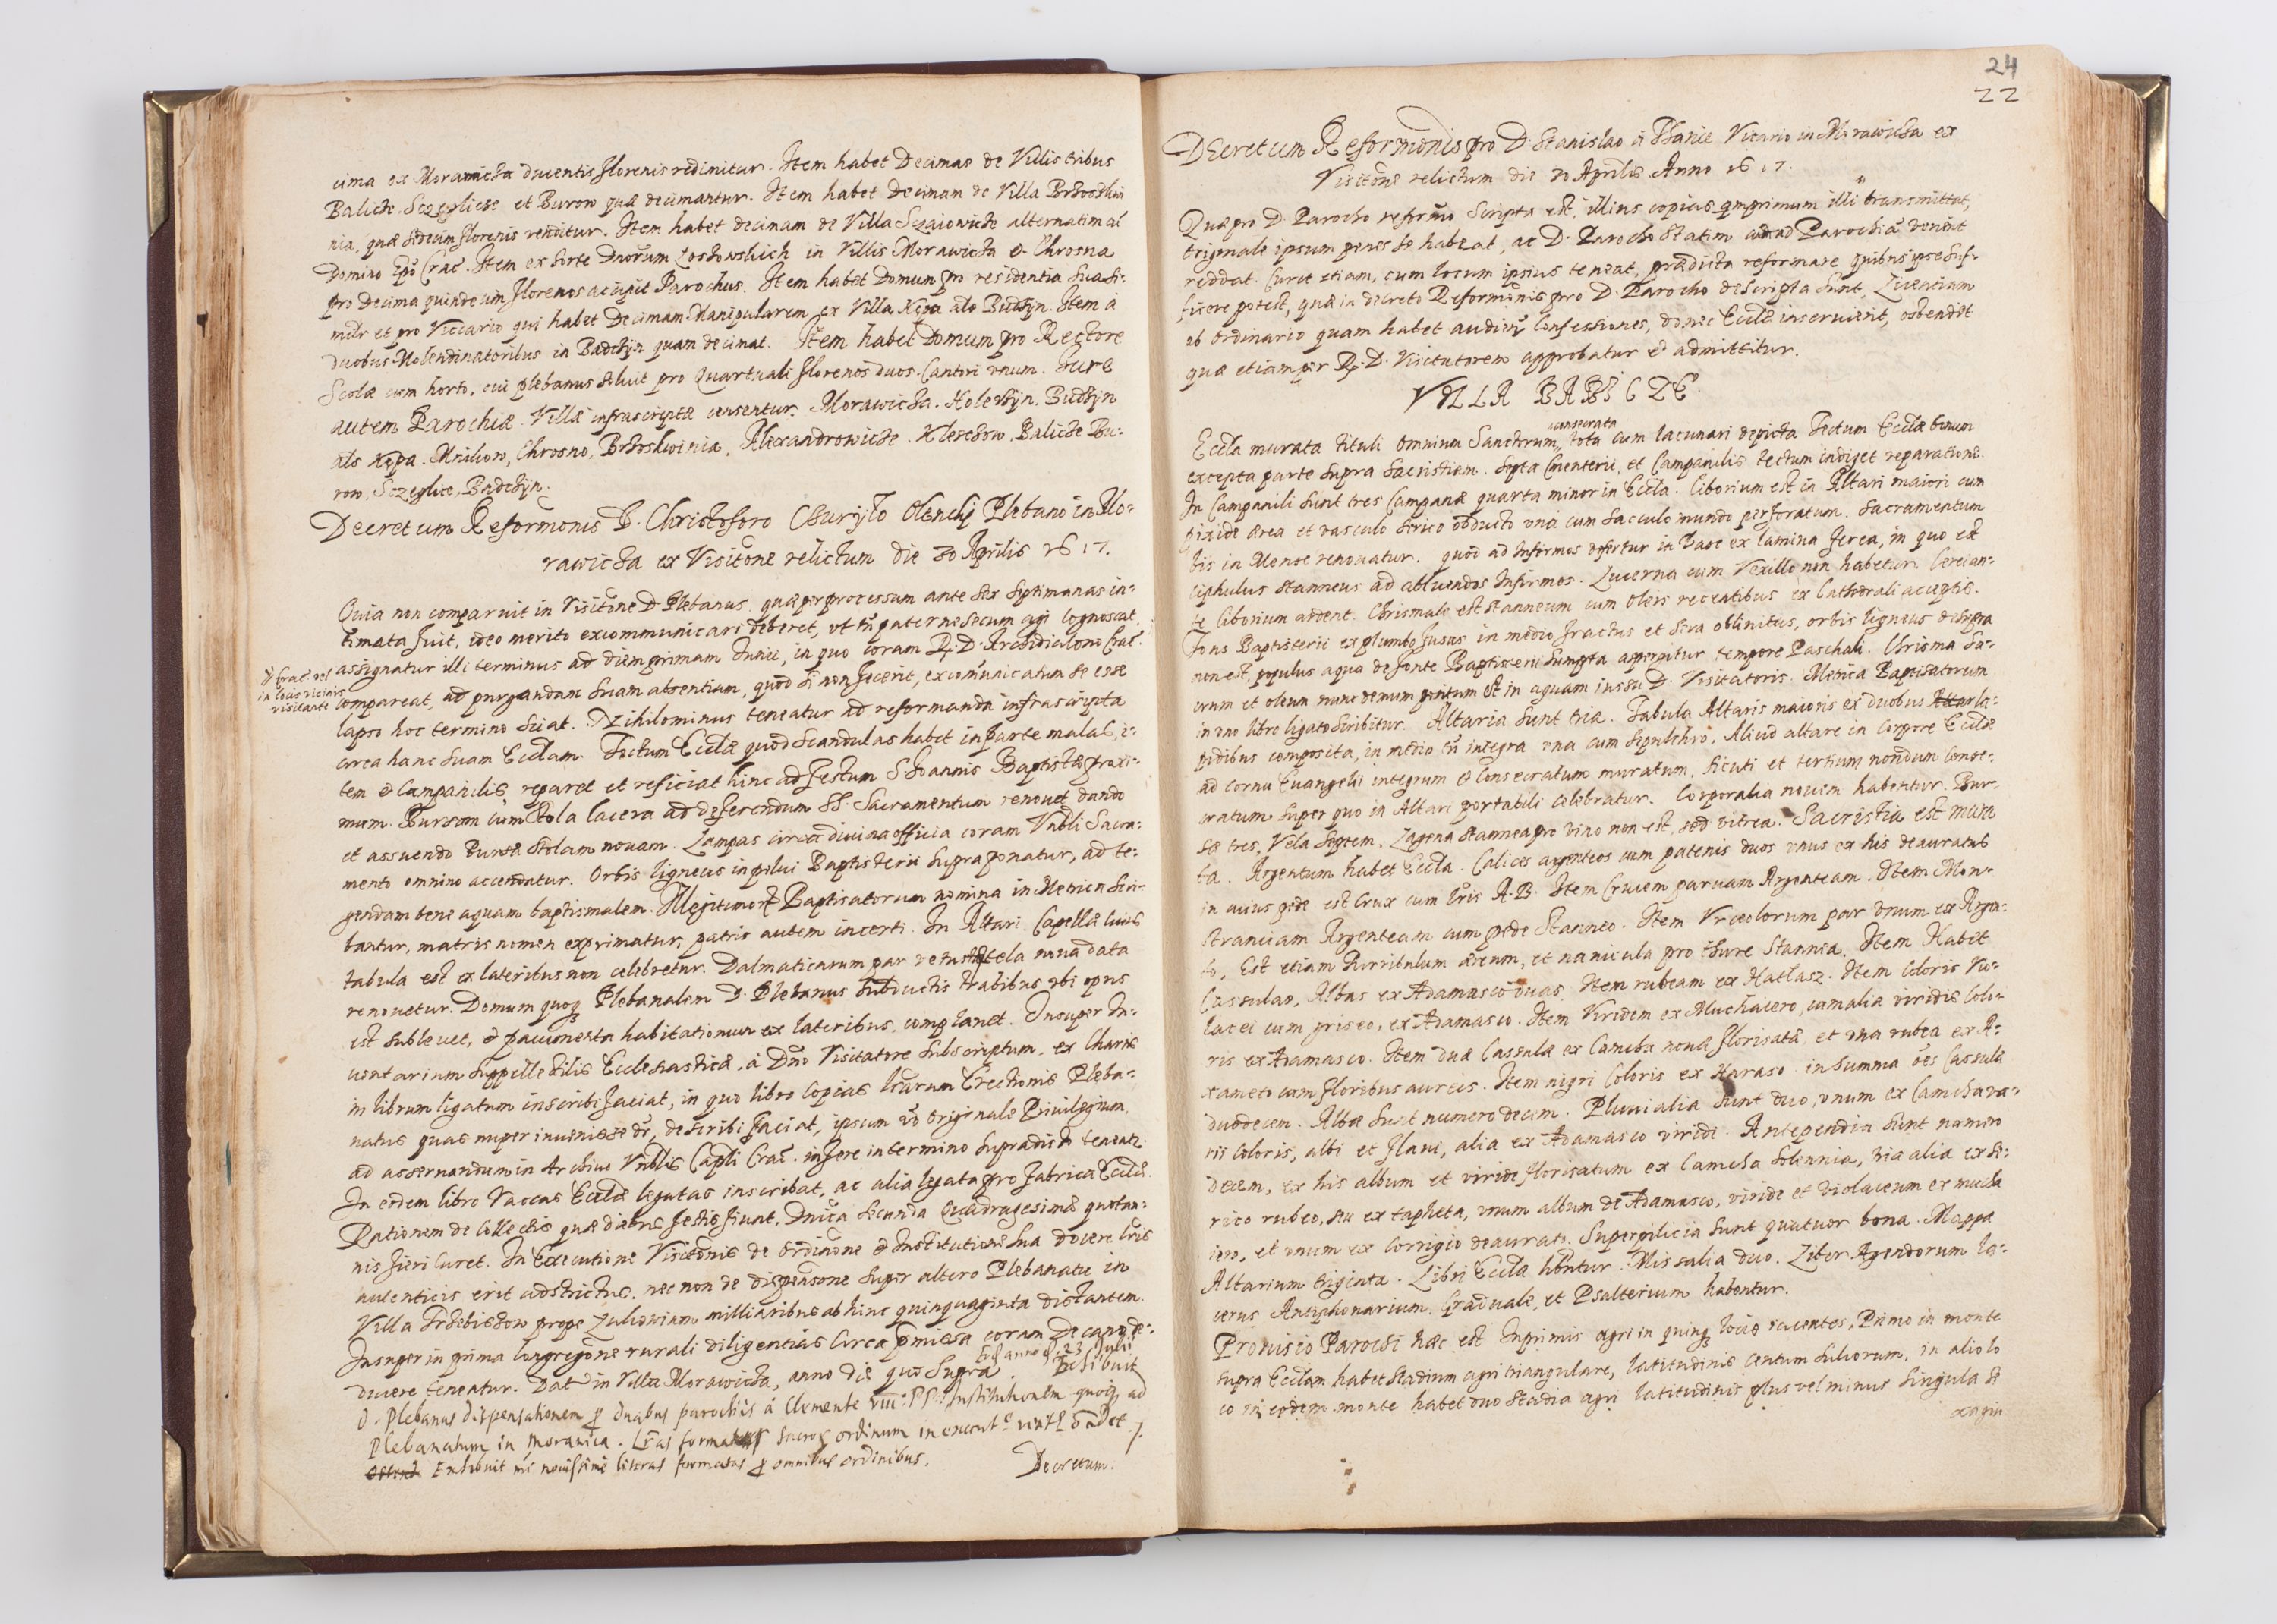 cima ex Morawicza ducentis florenis redimitur. Item habet Decimas de Villis tribus
Balicze Szczyglicze et Burow quæ decimantur. Item habet Decimam de Villa Brzoskwi
nia, quæ sedecim florenis venditur. Item habet decimam de Villa alternatim cũ
Domino Epõ Crac̃. Item ex sorte Dnõrum in Villis Morawicza & Chrosna
pro Decima quindecim florenos accipit Parochus. Item habet Domum pro residentia sua si-
milr et pro Viccario qui habet Decimam Manipularem ex Villa Kępa als Budzÿn. Item a
duobus Molendinatoribus in Badzÿn quam decimat. Item habet Domum pro Rectore
Scolæ cum horto, cui plebanus soluit pro Quartuali florenos duos. Cantori unum. Iure
autem Parochiæ Villæ infrascriptæ censentur. Morawicza. Holerzÿn, Budzÿn
als Kępa. Mnikow, Chrosno, Brzoskwinia, Alexandrowicze. Kleszczow, Balicze Bu-
row, Sczeglice, Badczÿn.
Decretum Reformõnis D. Christoforo Olencky Plebano in Mo-
rawicza ex Visitõne relictum die 30 Aprilis 1617.
Quia non comparuit in Visitõne D Plebanus, quæ per processum ante sex septimanas in-
timata fuit, ideo merito excommunicari deberet, ut tñ paterne secum agi cognoscat,
assignatur illi terminus ad diem primam Iunii, in quo coram R. D. Archidiacono Crac̃.
ł Crac̃ vel
in locis vicinis
visitante
compareat, ad purgandam suam absentiam, quod si non fecerit, excomunicatum se esse
lapso hoc termino sciat. Nihilominus teneatur ad reformanda infrascripta
circa hanc suam Ecclam. Tectum Ecclæ quod scandulas habet in parte malas, i-
tem & Campanilis, reparet et reficiat hinc ad festum S. Ioannis Baptistæ proxi-
mum. Bursam cum stola lacera ad deferendum SS. Sacramentum renouet dando
et assuendo bursæ stolam nouam. Lampas circa diuina officia coram Vnbli Sacra-
mento omnino accendatur. Orbis ligneus in pelui Baptisterii supra ponatur, ad te-
gendam bene aquam baptismalem. Illegitimorũ Baptisatorum nomina in Metrica scri-
bantur, matris nomen exprimatur, patris autem incerti. In Altari Capellæ cuius
tabula est ex lateribus non celebretur. Dalmaticarum par tela noua data
renouetur. Domum quoq Plebanalem D. Plebanus subductis trabibus ubi opus
est subleuet, & pauimenta habitationum ex lateribus, complanet. Insuper In-
uentarium suppellectilis Ecclesiasticæ, à Dno Visitatore subscriptum, ex Charta
in librum ligatum inscribi faciat, in quo libro Copias lrarum Erectionis Pleba-
natus quas nuper inuenisse dr, describi faciat, ipsum vo originale Priuilegium
ad asseruandum in Archiuo Vnblis Capli Crac̃. inferre in termino supradicto teneatr.
In eodem libro Vaccas Ecclæ legatas inscribat, ac alia legata pro fabrica Ecclæ.
Rationem de Collectis quæ diebus festis fiunt, Dnica secunda Quadragesimæ quotan-
nis fieri curet. In Executione Visitõnis de ordinõne & Institutione sua docere lris
autenticis erit adstrictus. nec non de dispensõne super altero Plebanatu in
Villa prope milliaribus ab hinc quinquaginta distantem.
Insuper in prima Congregõne rurali diligentias circa pmissa coram Decano de-
ducere teneatur. Dat in Villa Morawicza, anno die quo supra. exhibuit
D. Plebanus dispensationem p duabus parochiis à Clemente VIII: PP: Institutionem quoq ad
Plebanatum in Morauica. Lras sacroꝝ ordinum
Exhibuit mi nouissime literas formatas p omnibus ordinibus.
Decretum.
24
22
DEcretum Reformõnis pro D. Stanislao à Vicario in Morawicza ex
Visitõne relictum die 30 Aprilis Anno 1617.
Quæ pro D. Parocho reformõ scripta est, illius copias qmprimum illi transmittat,
originale ipsum penes se habeat, ac D. Parocho statim ad Parochiã venerit
reddat. Curet etiam, cum locum ipsius teneat, prædicta reformare quibus ipse suf-
ficere potest, quæ in decreto Reformõnis pro D. Parocho descripta sunt. Licentiam
ab ordinario quam habet Confessiones, donec Ecclæ inseruierit, ostendit
quæ etiam per R. D. Visitatorem approbatur & admittitur.
VILLA BABICZE.
Eccla murata tituli omnium Sanctorum, consecrata tota cum lacunari depicta Tectum Ecclæ bonum
excepta parte supra Sacristiam. Septa Cmenterii, et Campanilis tectum indiget reparatione.
In Campanili sunt tres Campanæ quarta minor in Eccla. Ciborium est in Altari maiori cum
pixide ærea et vasculo serico obducto una cum sacculo mundo perforatum. Sacramentum
bis in Mense renouatur. quod ad Infirmos defertur in Vase ex lamina ferea, in quo est
Ciphulus stanneus ad abluendos Infirmos. Lucerna cum Vexillo non habetur. Cerei an-
te Ciborium ardent. Chrismale est stanneum cum oleis recentibus ex Cathedrali acceptis.
Fons Baptisterii ex plumbo fusus in medio fractus et cera oblinitus, orbis ligneus desupra
non est, populus aqua de fonte Baptisterii sumpta aspergitur tempore Paschali. Chrisma sa-
crum et oleum nunc demum positum est in aquam iussu D. Visitatoris. Metrica Baptisatorum
in uno libro ligato scribitur. Altaria sunt tria. Tabula Altaris maioris ex duobus la-
pidibus composita, in medio tñ integra una cum sepulchro. Aliud altare in Corpore Ecclæ
ad cornu Euangelii integrum & Consecratum muratum, sicuti et tertium nondum conse-
cratum super quo in Altari portabili celebratur. Corporalia nouem habentur. Bur-
sæ tres, Vela septem. Lagena stannea pro vino non est, sed vitrea. Sacristia est mura
ta. Argentum habet Eccla. Calices argenteos cum patenis duos unus ex his deauratus
in cuius pede est Crux cum lris A. B. Item Crucem paruam Argenteam. Item Mon-
stranciam Argenteam cum pede Stanneo. Item Vrceolorum par unum ex Argen-
to, Est etiam Turribulum æreum, et nauicula pro thure Stannea. Item Habet
Cassulas, Albas ex Adamasco duas. Item rubeam ex Hatlasz. Item Coloris Vio-
lacei cum griseo, ex Adamasco. Item Viridem ex Muchaiero, cum alia viridis Colo-
ris ex Adamasco. Item duæ Cassulæ ex Camcha nouæ florisatæ, et una rubea ex A-
xameto cum floribus aureis. Item nigri Coloris ex Haraso. in summa oẽs Cassulæ
duodecem. Albæ sunt numero decem. Pluuialia sunt duo, unum ex Camcha va-
rii Coloris, albi et flaui, alia ex Adamasco viridi. Antependia sunt numero
Decem, ex his album et viride florisatum ex Camcha solennia, tria alia ex se-
rico rubeo, seu ex tapheta, unum album de Adamasco, viride et violaceum ex mucha
iero, et unum ex Corrigio deaurato. Superpilicia sunt quatuor bona. Mappa
Altarium triginta. Libri Ecclæ hñtur. Missalia duo. Liber Agendorum la-
cerus Antiphonarium. Graduale, et Psalterium habentur.
Prouisio Parochi hæc est Inprimis agri in quinq locis iacentes, Primo in monte
supra Ecclam habet stadium agri triangulare, latitudinis centum sulcorum, in alio lo
co in eodem monte habet duo stadia agri latitudinis plus vel minus singula se
xagin